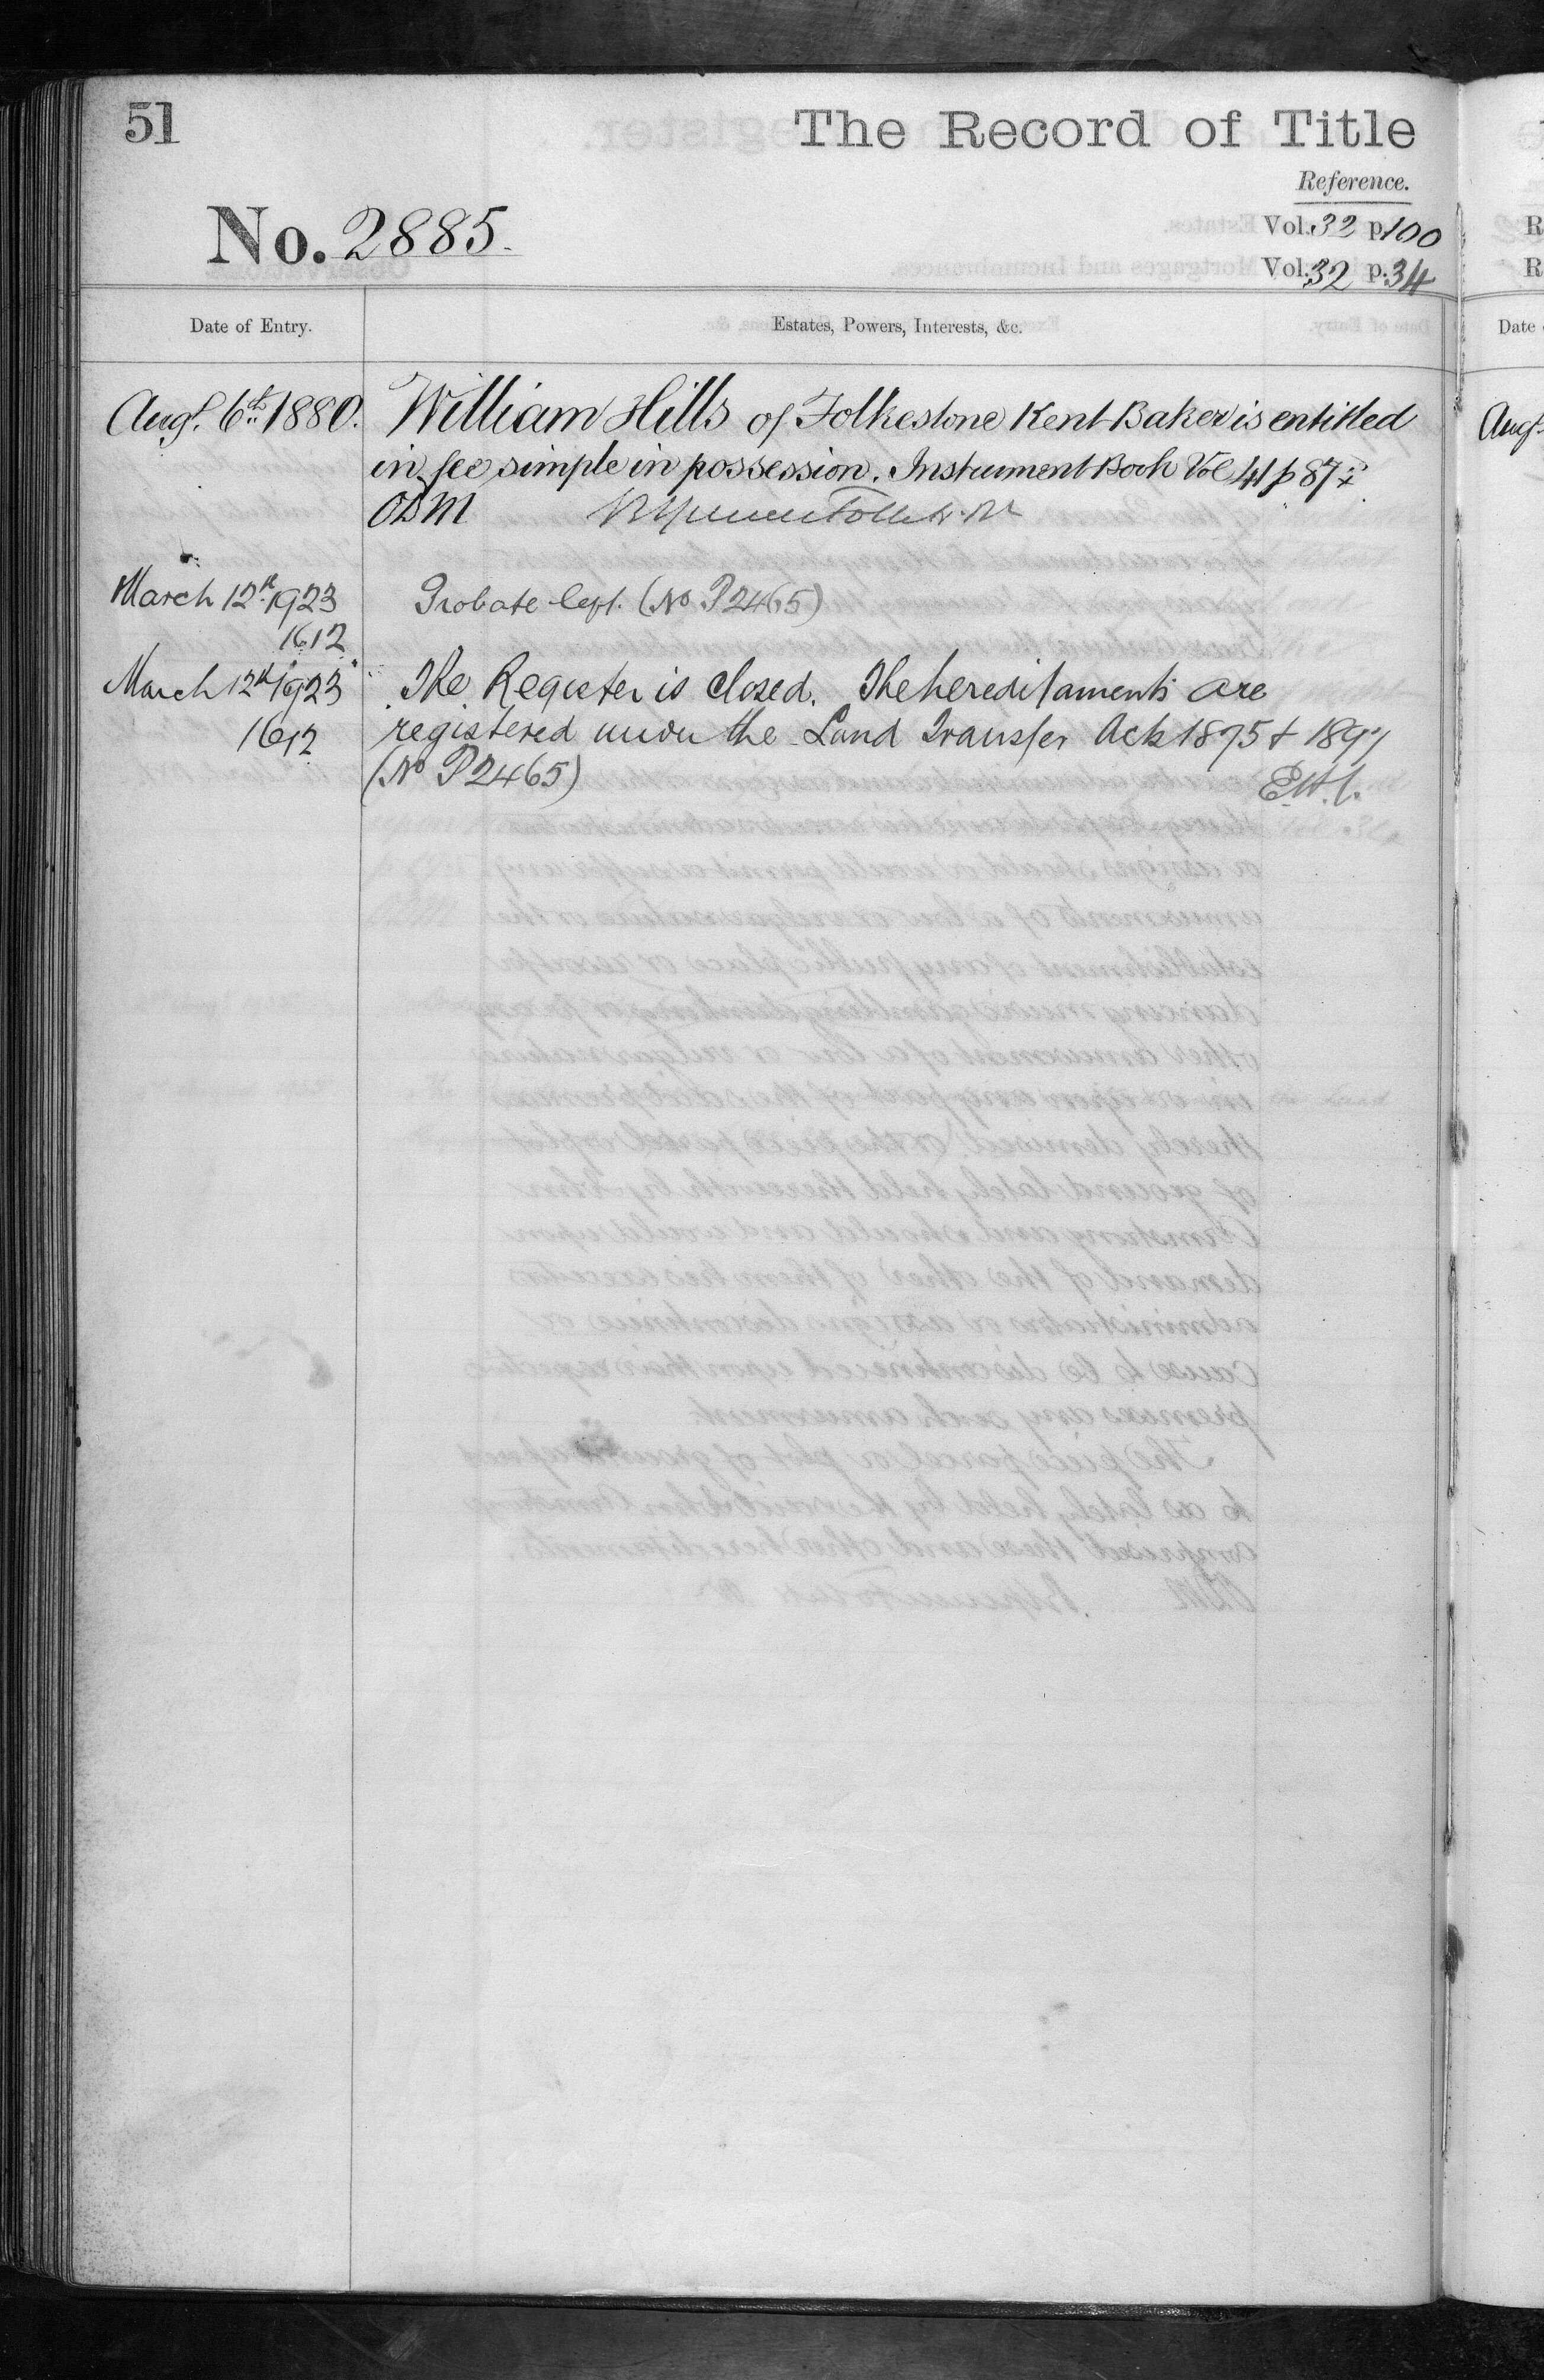 51
The Record of Title
Reference.
No. 2885.
Vol. 32 p. 100
Vol. 32 p. 34
Date of Entry.
Estates, Powers, Interests, &c.
Augt. 6th 1880.
William Hills of Folkestone Kent Baker is entitled
in fee simple in possession. Instrument Book Vol 41 p 87
ODM
March 12th 1923
Probate left. (No P2465)
1612
March 12th 1923
The Register is closed. The hereditaments are
1612
registered under the Land Transfer Acts 1875 & 1897
(No P2465)
R
R
Date
Augt.